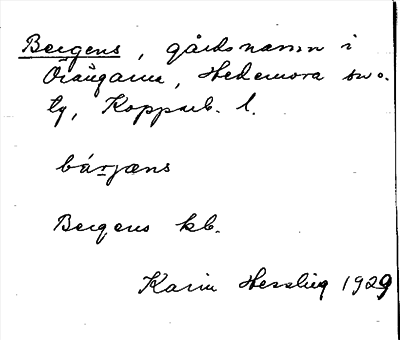 Bergens, gårdsnamn i
Hedemora sn o.
tg, Kopparb. l.
bárjæns
Bergens kb.
Karin Hessling 1929